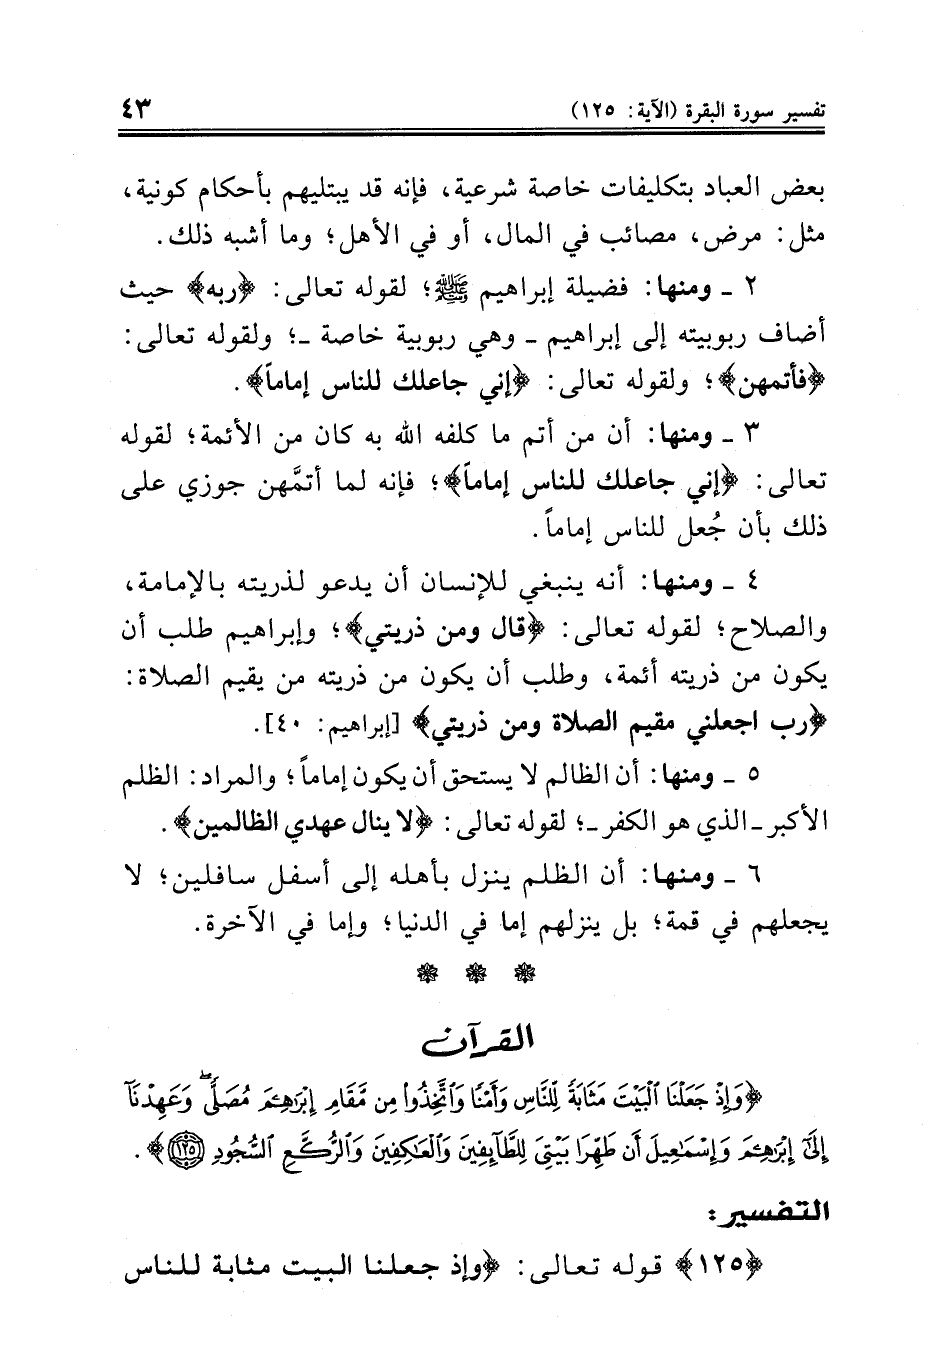 تفسير سورة البقرة (الآية: ١٢٥) ٤٣
بعض العباد بتكليفات خاصة شرعية، فإنه قد يبتليهم بأحكام كونية،
مثل: مرض، مصائب في المال، أو في الأهل؛ وما أشبه ذلك.
٢ ـ ومنها: فضيلة إبراهيم ﷺ؛ لقوله تعالى: ﴿ربه﴾ حيث
أضاف ربوبيته إلى إبراهيم ـ وهي ربوبية خاصة ـ؛ ولقوله تعالى:
﴿فأتمهن﴾؛ ولقوله تعالى: ﴿إني جاعلك للناس إماماً﴾.
٣ ـ ومنها: أن من أتم ما كلفه الله به كان من الأئمة؛ لقوله
تعالى: ﴿إني جاعلك للناس إماماً﴾؛ فإنه لما أتمَّهن جوزي على
ذلك بأن جُعل للناس إماماً.
٤ ـ ومنها: أنه ينبغي للإنسان أن يدعو لذريته بالإمامة،
والصلاح؛ لقوله تعالى: ﴿قال ومن ذريتي﴾؛ وإبراهيم طلب أن
يكون من ذريته أئمة، وطلب أن يكون من ذريته من يقيم الصلاة:
﴿رب اجعلني مقيم الصلاة ومن ذريتي﴾ [إبراهيم: ٤٠].
٥ ـ ومنها: أن الظالم لا يستحق أن يكون إماماً؛ والمراد: الظلم
الأكبر ـ الذي هو الكفر ـ؛ لقوله تعالى: ﴿لا ينال عهدي الظالمين﴾.
٦ ـ ومنها: أن الظلم ينزل بأهله إلى أسفل سافلين؛ لا
يجعلهم في قمة؛ بل ينزلهم إما في الدنيا؛ وإما في الآخرة.
القرآن
﴿وَإِذْ جَعَلْنَا ٱلْبَيْتَ مَثَابَةً لِّلنَّاسِ وَأَمْنًا وَٱتَّخِذُوا۟ مِن مَّقَامِ إِبْرَٰهِـۧمَ مُصَلًّى ۖ وَعَهِدْنَآ
إِلَىٰٓ إِبْرَٰهِـۧمَ وَإِسْمَٰعِيلَ أَن طَهِّرَا بَيْتِىَ لِلطَّآئِفِينَ وَٱلْعَٰكِفِينَ وَٱلرُّكَّعِ ٱلسُّجُودِ ١٢٥﴾.
التفسير:
﴿١٢٥﴾ قوله تعالى: ﴿وإذ جعلنا البيت مثابة للناس